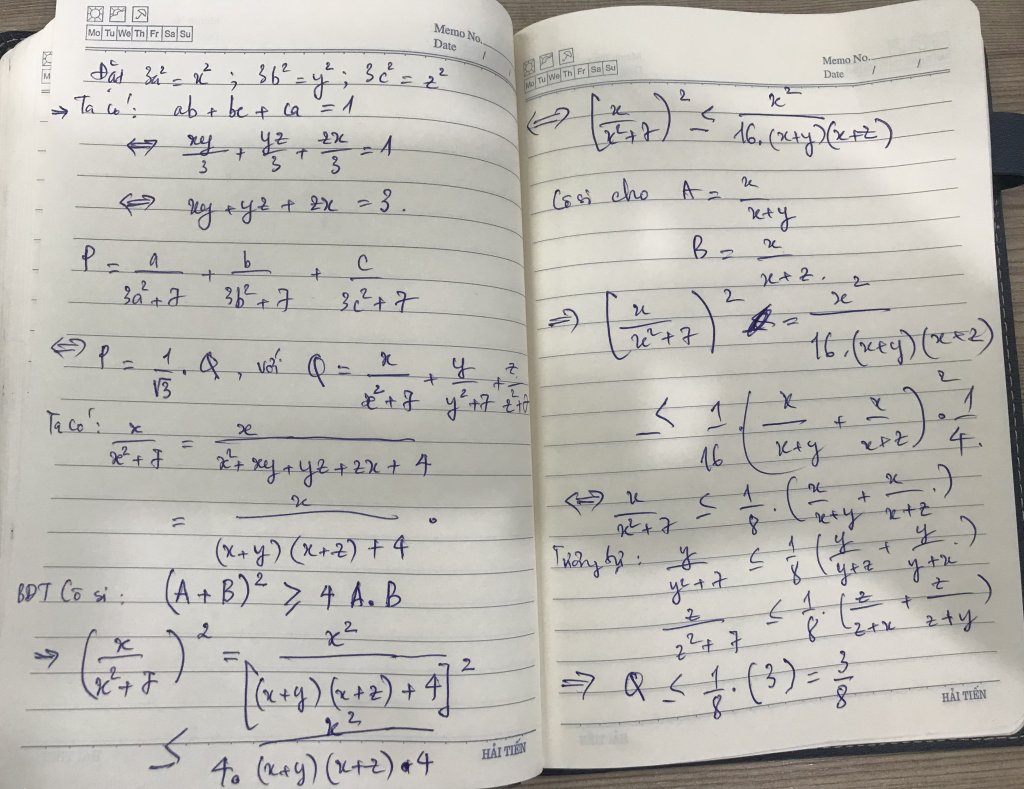 Mo Tu We Th Fr Sa Su
Memo No.
Date / /
Đặt 3a² = x² ; 3b² = y² ; 3c² = z²
⇒ Ta có: ab + bc + ca = 1
⇔ xy/3 + yz/3 + zx/3 = 1
⇔ xy + yz + zx = 3.
P = a/(3a²+7) + b/(3b²+7) + c/(3c²+7)
⇔ P = 1/√3 . Q, với Q = x/(x²+7) + y/(y²+7) + z/(z²+7)
Ta có: x/(x²+7) = x/(x²+xy+yz+zx+4)
= x/((x+y)(x+z)+4) .
BĐT Cô si: (A+B)² ⩾ 4 A.B
⇒ (x/(x²+7))² = x²/[(x+y)(x+z)+4]²
≤ x²/(4.(x+y)(x+z).4)
HẢI TIẾN
Mo Tu We Th Fr Sa Su
Memo No.
Date / /
⇔ [x/(x²+7)]² ≤ x²/(16.(x+y)(x+z))
Cô si cho A = x/(x+y)
B = x/(x+z).
⇒ [x/(x²+7)]² = x²/(16.(x+y)(x+z))
≤ 1/16 . (x/(x+y) + x/(x+z))² . 1/4.
⇔ x/(x²+7) ≤ 1/8 . (x/(x+y) + x/(x+z).)
Tương tự: y/(y²+7) ≤ 1/8 (y/(y+z) + y/(y+x).)
z/(z²+7) ≤ 1/8 . (z/(z+x) + z/(z+y))
⇒ Q ≤ 1/8 . (3) = 3/8
HẢI TIẾN